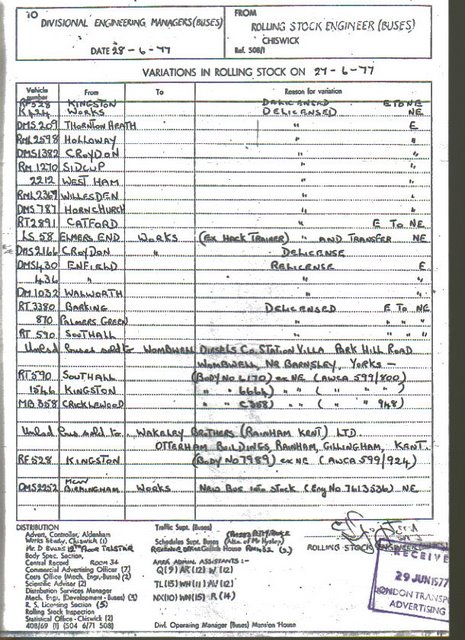 TO
DIVISIONAL ENGINEERING MANAGERS (BUSES)
DATE 28-6-77
FROM
ROLLING STOCK ENGINEER (BUSES)
CHISWICK
Ref. 508/1
VARIATIONS IN ROLLING STOCK ON 27-6-77
Vehicle number From To Reason for variation
RF528 KINGSTON DELICENSED E TO NE
K424 WORKS DELICENSED NE
DMS209 THORNTON HEATH " E
RML2598 HOLLOWAY " "
DMS1382 CROYDON " "
RM1270 SIDCUP " "
2212 WEST HAM " "
RML2369 WILLESDEN " "
DMS787 HORNCHURCH " "
RT2891 CATFORD " E TO NE
LS58 ELMERS END WORKS (EX HACK TRAINER) " AND TRANSFER NE
DMS2166 CROYDON " DELICENSE "
DMS430 ENFIELD RELICENSE E
436 " " "
DM1032 WALWORTH " "
RT3380 BARKING DELICENSED E TO NE
870 PALMERS GREEN " " " "
RT590 SOUTHALL " " " "
Unlicd Buses sold to WOMBWELL DIESELS CO. STATION VILLA PARK HILL ROAD
WOMBWELL, NR BARNSLEY, YORKS
RT590 SOUTHALL (BODY NO 6170) ex NE (AWCA 599/800)
1546 KINGSTON " " 6664) " " ( " " )
MB358 CRICKLEWOOD " " C358) " " ( " 948)
Unlicd Bus sold to WAKELEY BROTHERS (RAINHAM KENT) LTD.
OTTERHAM BUILDINGS RAINHAM, GILLINGHAM, KENT.
RF528 KINGSTON (BODY NO 7989) ex NE (AWCA 599/924)
DMS2252 MCW BIRMINGHAM WORKS NEW BUS into STOCK (Eng No 7613536) NE
DISTRIBUTION
Advert. Controller, Aldenham
Works Study, Chiswick (1)
Mr D EVANS 12TH FLOOR TELSTAR
Body Spec. Section,
Central Record ROOM 34
Commercial Advertising Officer (7)
Costs Office (Mech. Engr. Buses) (2)
Scientific Adviser (2)
Distribution Services Manager
Mech. Engr. (Development - Buses) (3)
R. S. Licensing Section (5)
Rolling Stock Inspection
Statistical Office - Chiswick (2)
408/69 (1) 504 6/71 508
Traffic Supt. (Buses)
Schedules Supt. (Buses)
AREA ADMIN ASSISTANTS :-
Q(9) AR(12) W(12)
TL(15) WH(11) AV(12)
NX(10) WN(15) R(14)
Divl. Operating Manager (Buses) Mansion House
ROLLING STOCK ENGINEER
RECEIVED
29 JUN 1977
LONDON TRANSPORT
ADVERTISING